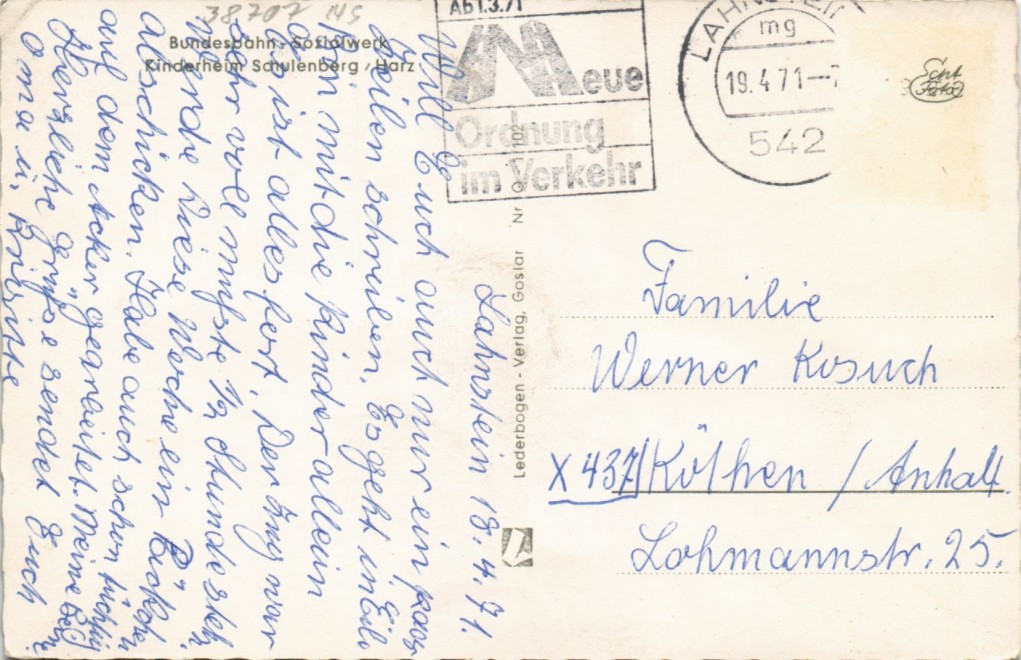 38707 MS
Bundesbahn-Sozialwerk
Kinderheim Schulenberg / Harz
Ab 1.3.71
Neue
Ordnung
im Verkehr
LAHNSTEIN
mg
19.4.71--7
542
Echt
Foto
Lederbogen - Verlag, Goslar Nr. O 102
Lahnstein 18.4.71.
Will Euch auch nur ein paar
Zeilen schreiben. Es geht im Eile
bin mit die Kinder allein
es ist alles fort. Der Zug war
sehr voll mußste 1/2 Stunde steh.
Werde diese Woche ein Päckchen
abschicken. Habe auch schon tüchtig
auf dem Acker gearaeitet. Meine
Herzliche Grüße sendet Euch
Oma u.
Familie
Werner Kosuch
X 437 Köthen / Anhalt.
Lohmannstr. 25.